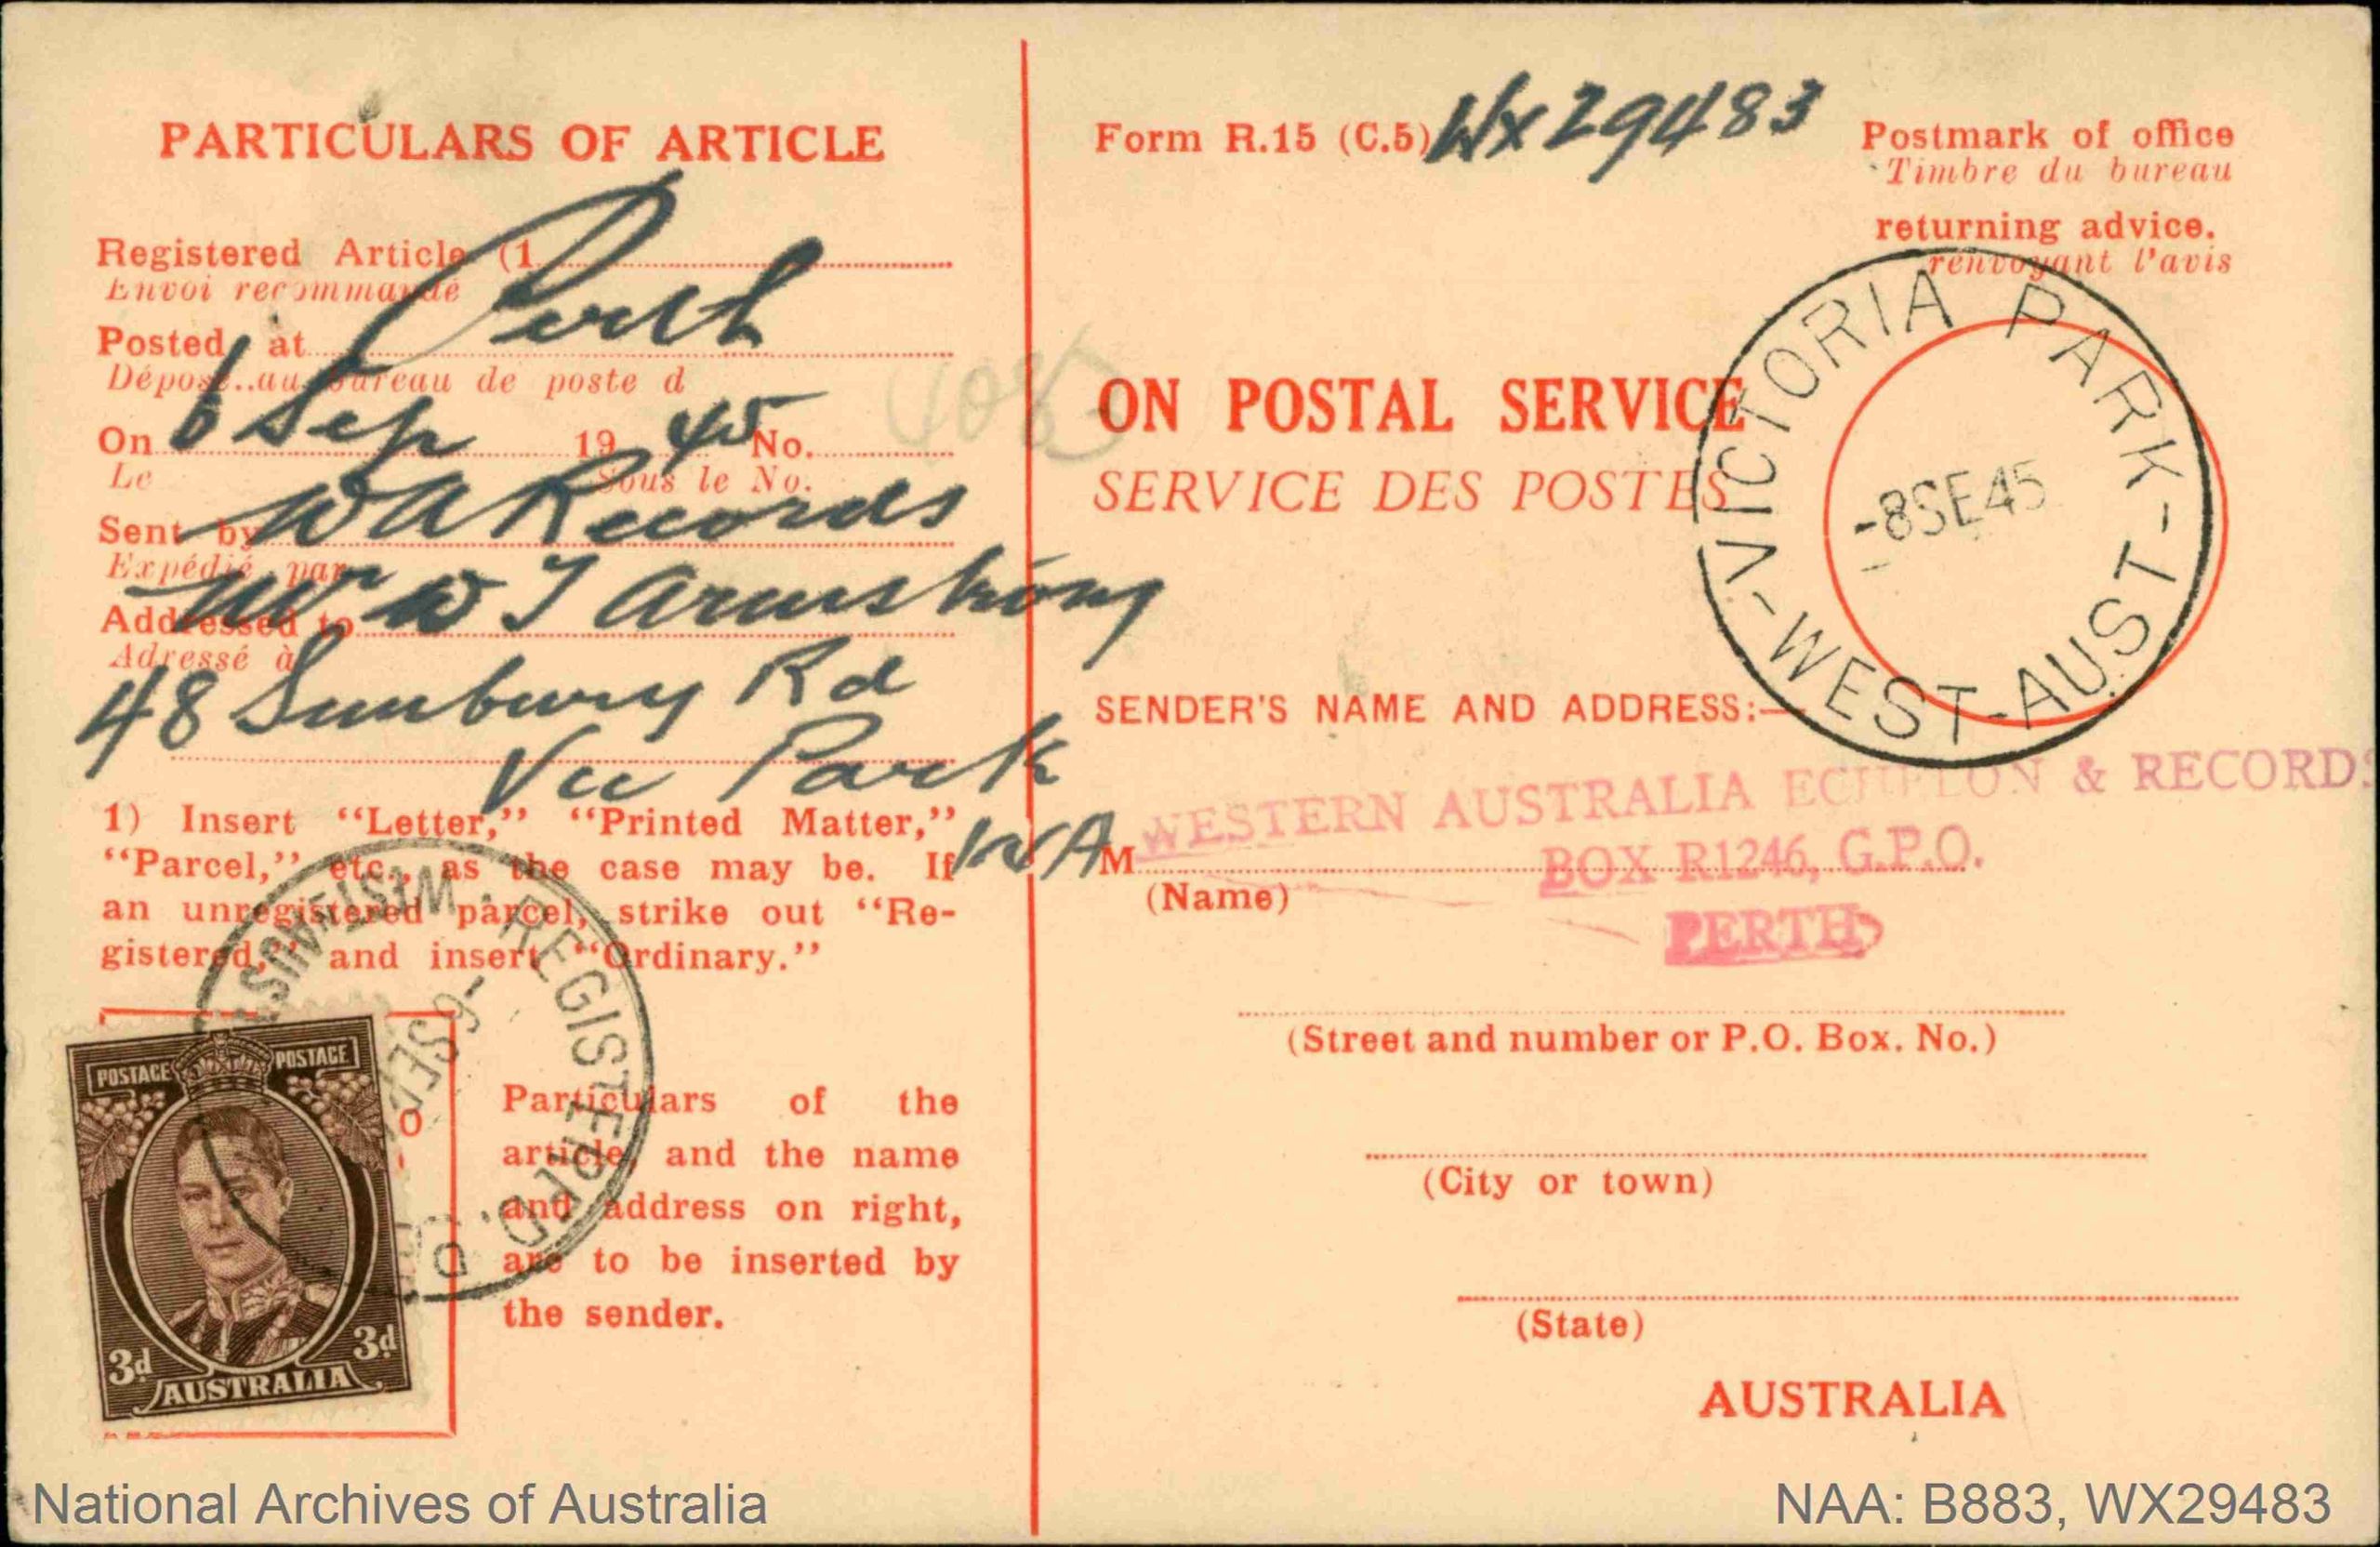 PARTICULARS OF ARTICLE
Registered Article (1
Envoi recommandé
Perth
Posted at
Déposé au bureau de poste d
On 6 Sep 1945 No.
Le Sous le No.
Sent by W A Records
Expédié par
Addressed to Mr W J Armstrong
Adressé à
48 Sunbury Rd
Vic Park
WA
1) Insert “Letter,” “Printed Matter,”
“Parcel,” etc., as the case may be. If
an unregistered parcel, strike out “Re-
gistered,” and insert “Ordinary.”
REGISTERED.
-6 SE
POSTAGE POSTAGE
3d 3d
AUSTRALIA
Particulars of the
article, and the name
and address on right,
are to be inserted by
the sender.
Form R.15 (C.5) WX29483
Postmark of office
Timbre du bureau
returning advice.
renvoyant l'avis
VICTORIA PARK-
-8SE45
-WEST-AUST-
ON POSTAL SERVICE
SERVICE DES POSTES
SENDER'S NAME AND ADDRESS:—
WESTERN AUSTRALIA ECHELON & RECORDS
M
BOX R1246, G.P.O.
(Name)
PERTH
(Street and number or P.O. Box. No.)
(City or town)
(State)
AUSTRALIA
National Archives of Australia
NAA: B883, WX29483